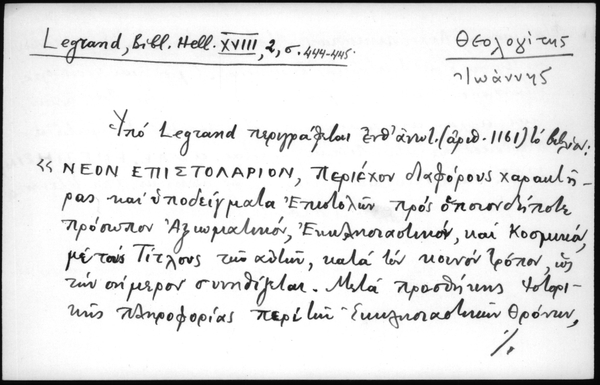 Legrand, Bibl. Hell. XVIII, 2, σ. 444-445.
Θεολογίτης
Ἰωάννης
Ὑπό Legrand περιγράφεται ἐνθ' ἀνωτ. (ἀριθ. 1161) τό βιβλίον:
« ΝΕΟΝ ΕΠΙΣΤΟΛΑΡΙΟΝ, περιέχον διαφόρους χαρακτῆ-
ρας καί ὑποδείγματα Ἐπιστολῶν πρός ὁποιονδήποτε
πρόσωπον Ἀξιωματικόν, Ἐκκλησιαστικόν, καί Κοσμικόν,
μέ τούς Τίτλους τῶν αὐτῶν, κατά τόν κοινόν τρόπον, ὡς
τήν σήμερον συνηθίζεται. Μετά προσθήκης Ἱστορι-
κῆς πληροφορίας περί τῶν Ἐκκλησιαστικῶν Θρόνων,
./.